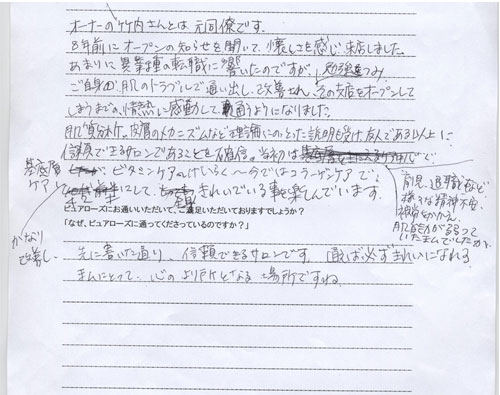 オーナーの竹内さんとは元同僚です。
8年前にオープンの知らせを聞いて、懐しさを感じ来店しました。
あまりに異業種の転職に驚いたのですが、勉強をつみ、
ご自身の肌のトラブルで通い出し、改善され、その支店をオープンして
しまうまでの情熱に感動して通うようになりました。
肌質分析や、皮膚のメカニズムなど理論にのっとった説明を受け、友人である以上に
信頼できるサロンであることを確信。当初は
基底層ケア
ビタミンケアのけいらく〜今ではコラーゲンケアで!
にして、きれいでいる事を楽しんでいます。
育児、退職など様々な精神不安、疲労がかさみ、肌が弱っていたもんでしたが、
かなり改善し、
ピュアローズにお通いいただいて、ご満足いただいておりますでしょうか?
「なぜ、ピュアローズに通ってくださっているのですか?」
先に書いた通り、信頼できるサロンです。通えば必ずきれいになれる。
私にとって、心のより所となる場所ですね。